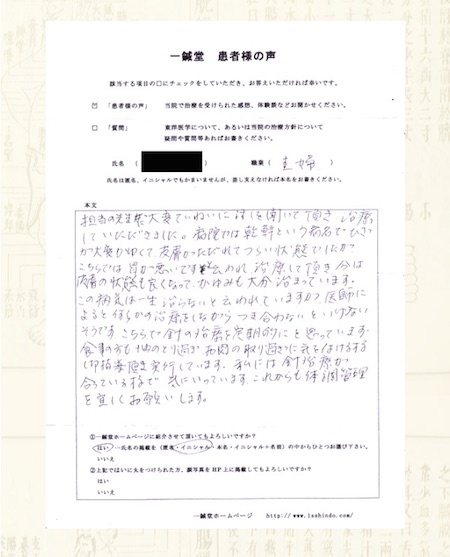 一鍼堂 患者様の声
該当する項目の□にチェックをしていただき、お答えいただければ幸いです。
☑ 「患者様の声」 当院で治療を受けられた感想、体験談などお聞かせください。
□ 「質問」 東洋医学について、あるいは当院の治療方針について
疑問や質問等あればお書きください。
氏名 ( ) 職業 ( 主婦 )
氏名は匿名、イニシャルでもかまいませんが、差し支えなければ本名をお書きください。
本文
担当の先生大変ていねいに話しを聞いて頂き、治療
していただきました。病院では乾癬という病名でひざ
が大変かゆくて、皮膚がただれてつらい状態でしたが
こちらでは胃が悪いですと云われ治療して頂き今は
皮膚の状態も良くなって、かゆみも大分治まっています。
この病気は一生治らないと云われていますが医師に
よると何らかの治療をしながらつき合わないといけない
そうです。こちらで針の治療を定期的にと思っています。
食事の方も他のとり過ぎ お酒の取り過ぎに気をつけする
実行しています。私には針治療が
合っている様で気にいっています。これからも体調管理
を宜しくお願いします。
①一鍼堂ホームページに紹介させて頂いてもよろしいですか？
はい －氏名の掲載を（匿名・イニシャル・本名・イニシャル＋名前）の中からひとつお選び下さい。
いいえ
②上記ではいに丸をつけられた方、顔写真をHP上に掲載してもよろしいですか？
はい
いいえ
一鍼堂ホームページ http://www.1sshindo.com/